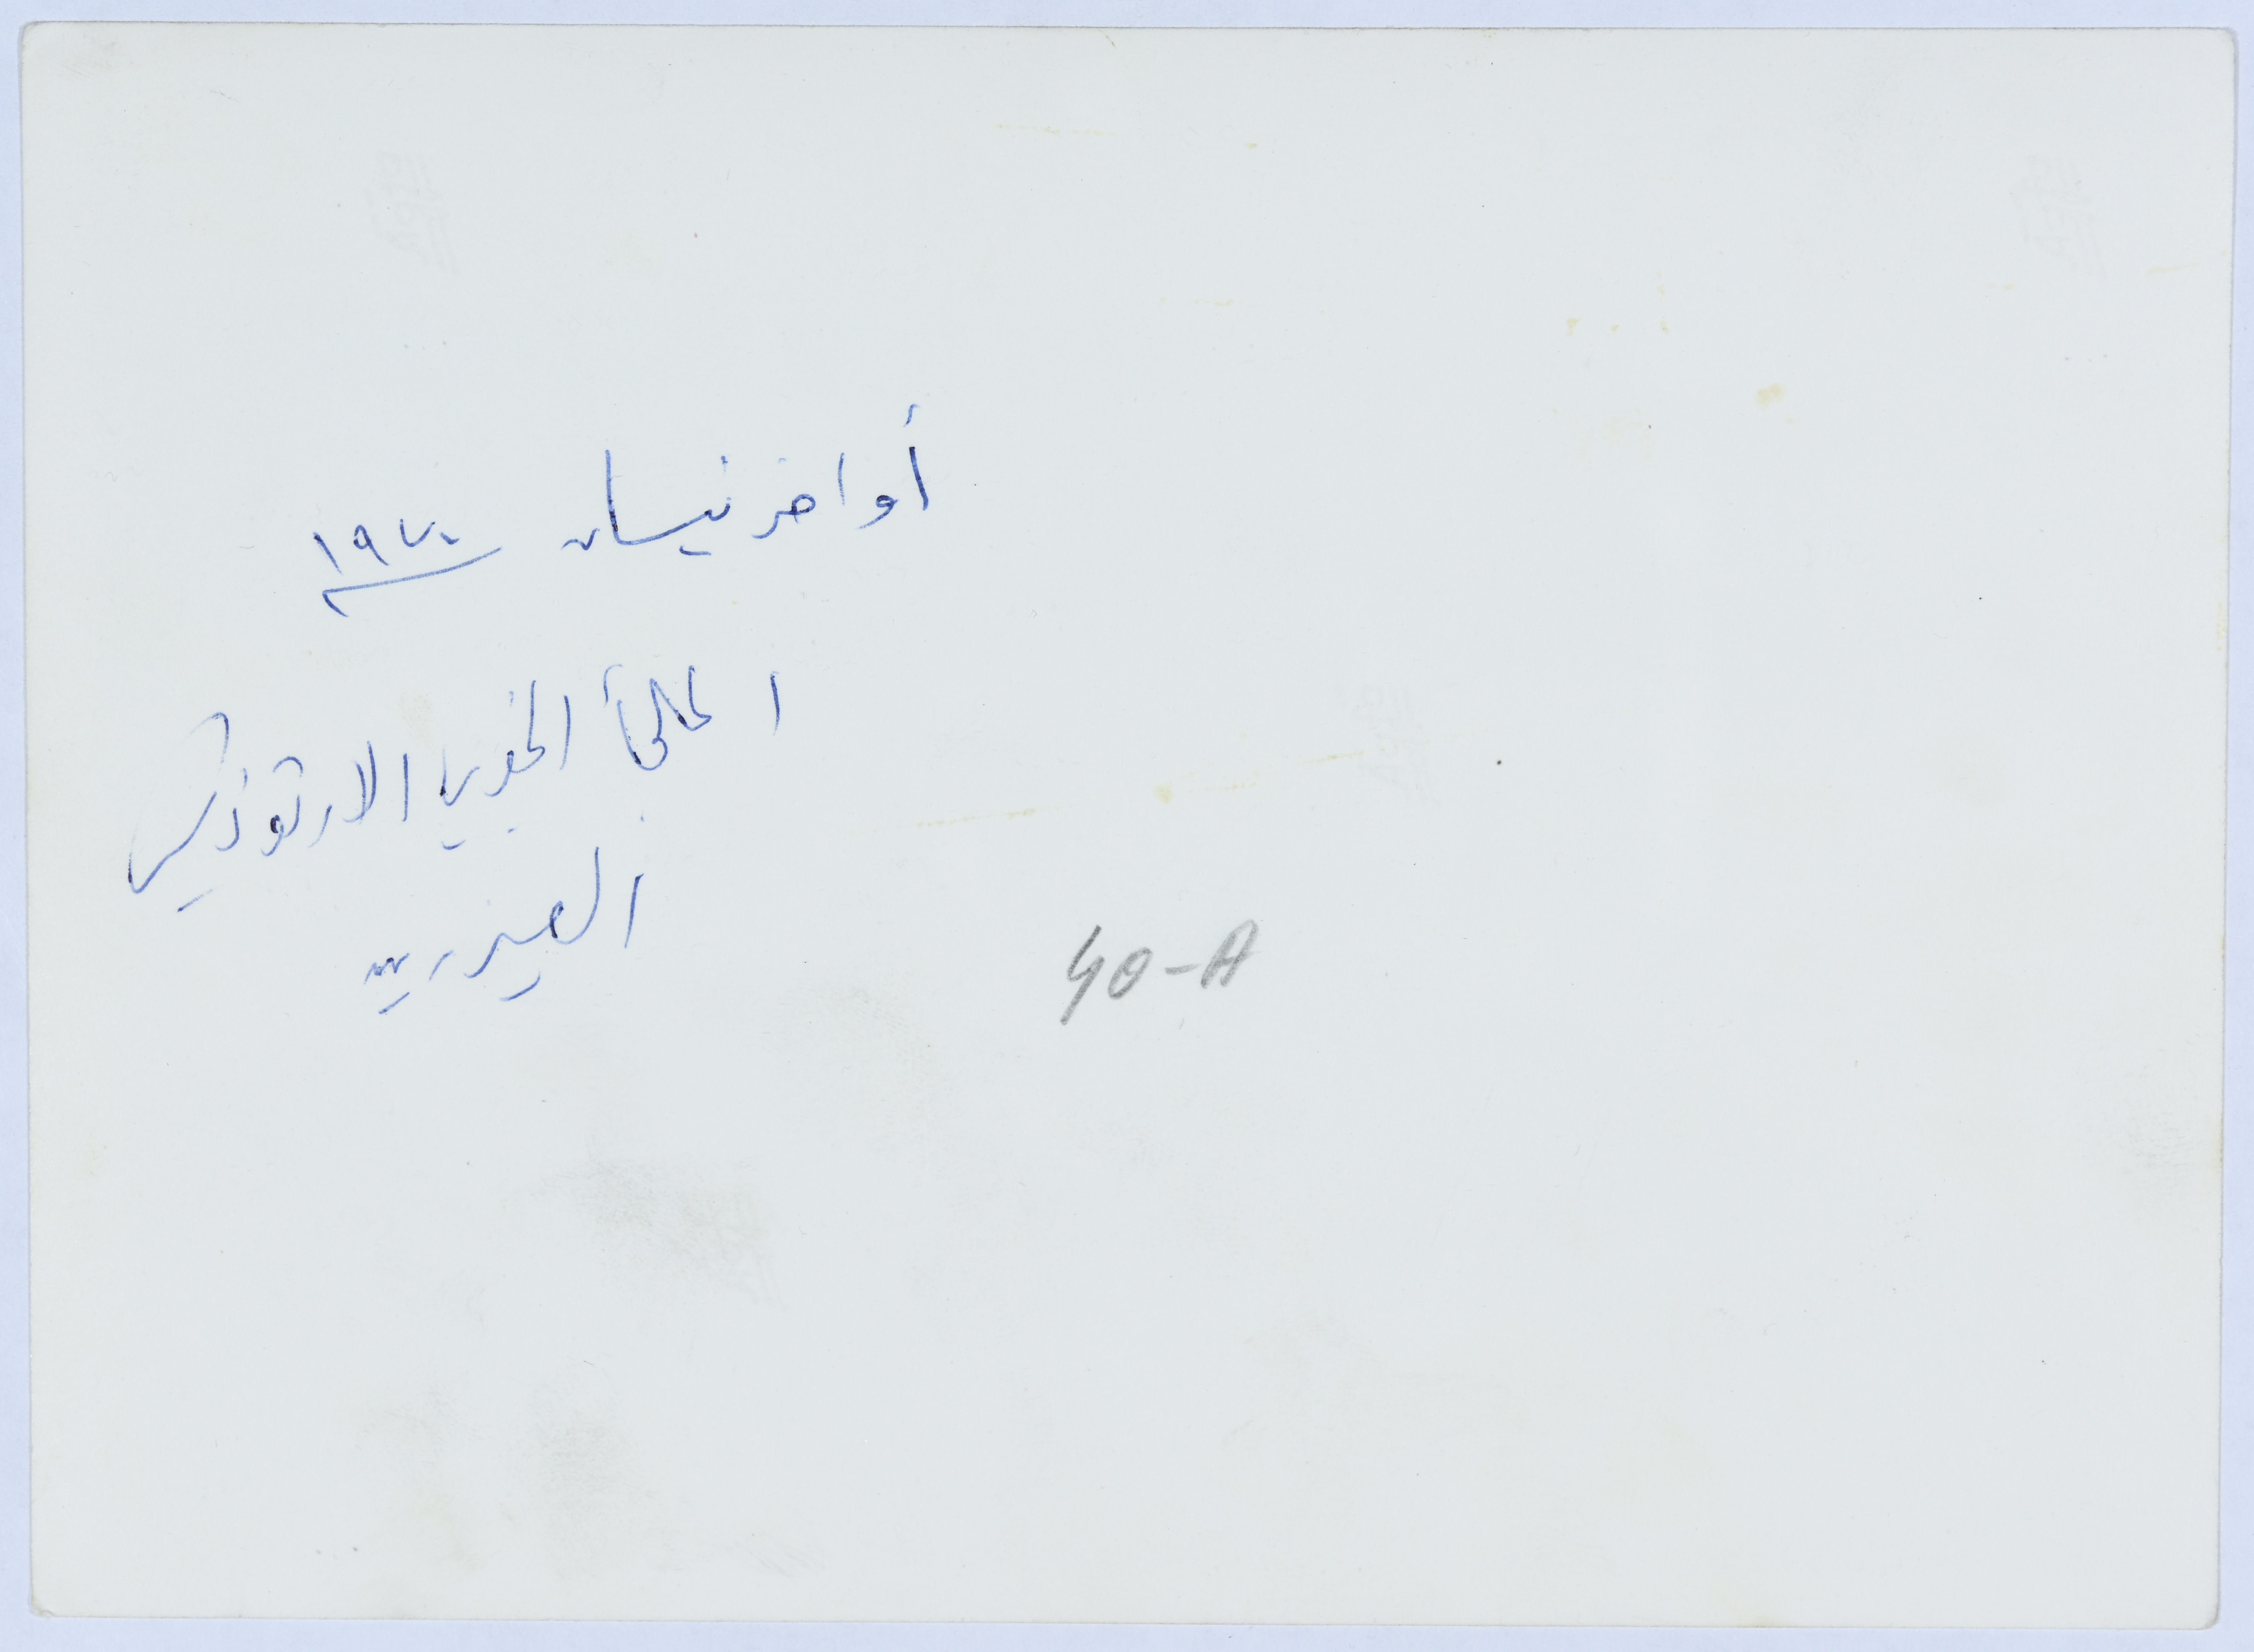 أواخر نيسان ١٩٧٠
الملجأ الخيري الارثوذكسي
العيزرية
40-A